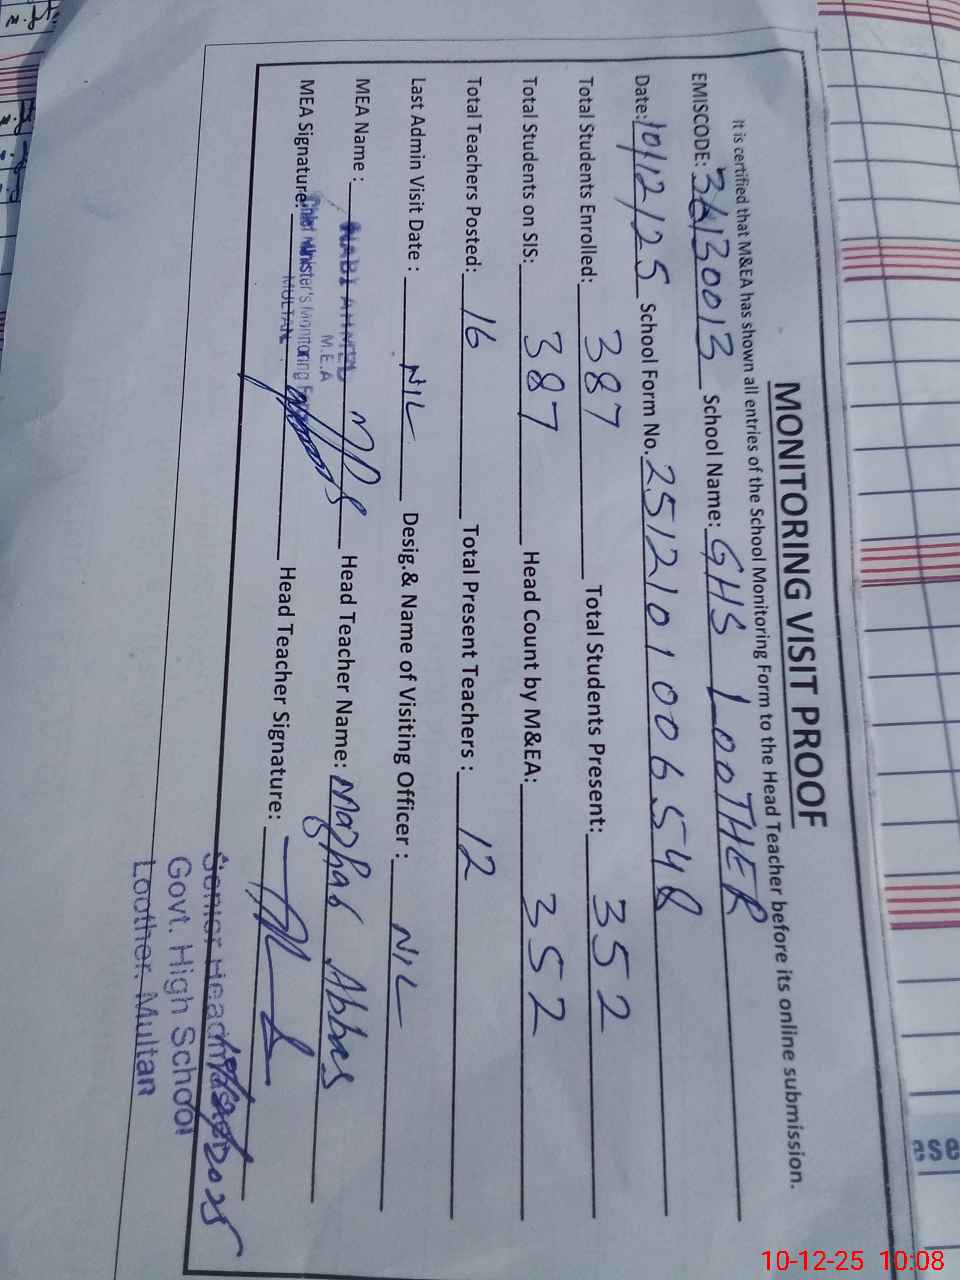 MONITORING VISIT PROOF
It is certified that M&EA has shown all entries of the School Monitoring Form to the Head Teacher before its online submission.
EMISCODE: 36130013 School Name: GHS LOOTHER
Date: 10/12/25 School Form No. 2512101006548
Total Students Enrolled: 387 Total Students Present: 352
Total Students on SIS: 387 Head Count by M&EA: 352
Total Teachers Posted: 16 Total Present Teachers : 12
Last Admin Visit Date : NIL Desig.& Name of Visiting Officer : NIL
MEA Name : NABI AHMED Head Teacher Name: Mazhar Abbas
M.E.A
MEA Signature: Chief Minister's Monitoring Head Teacher Signature:
MULTAN
Senior Headmaster
Govt. High School
Loother, Multan
ese
10-12-25 10:08